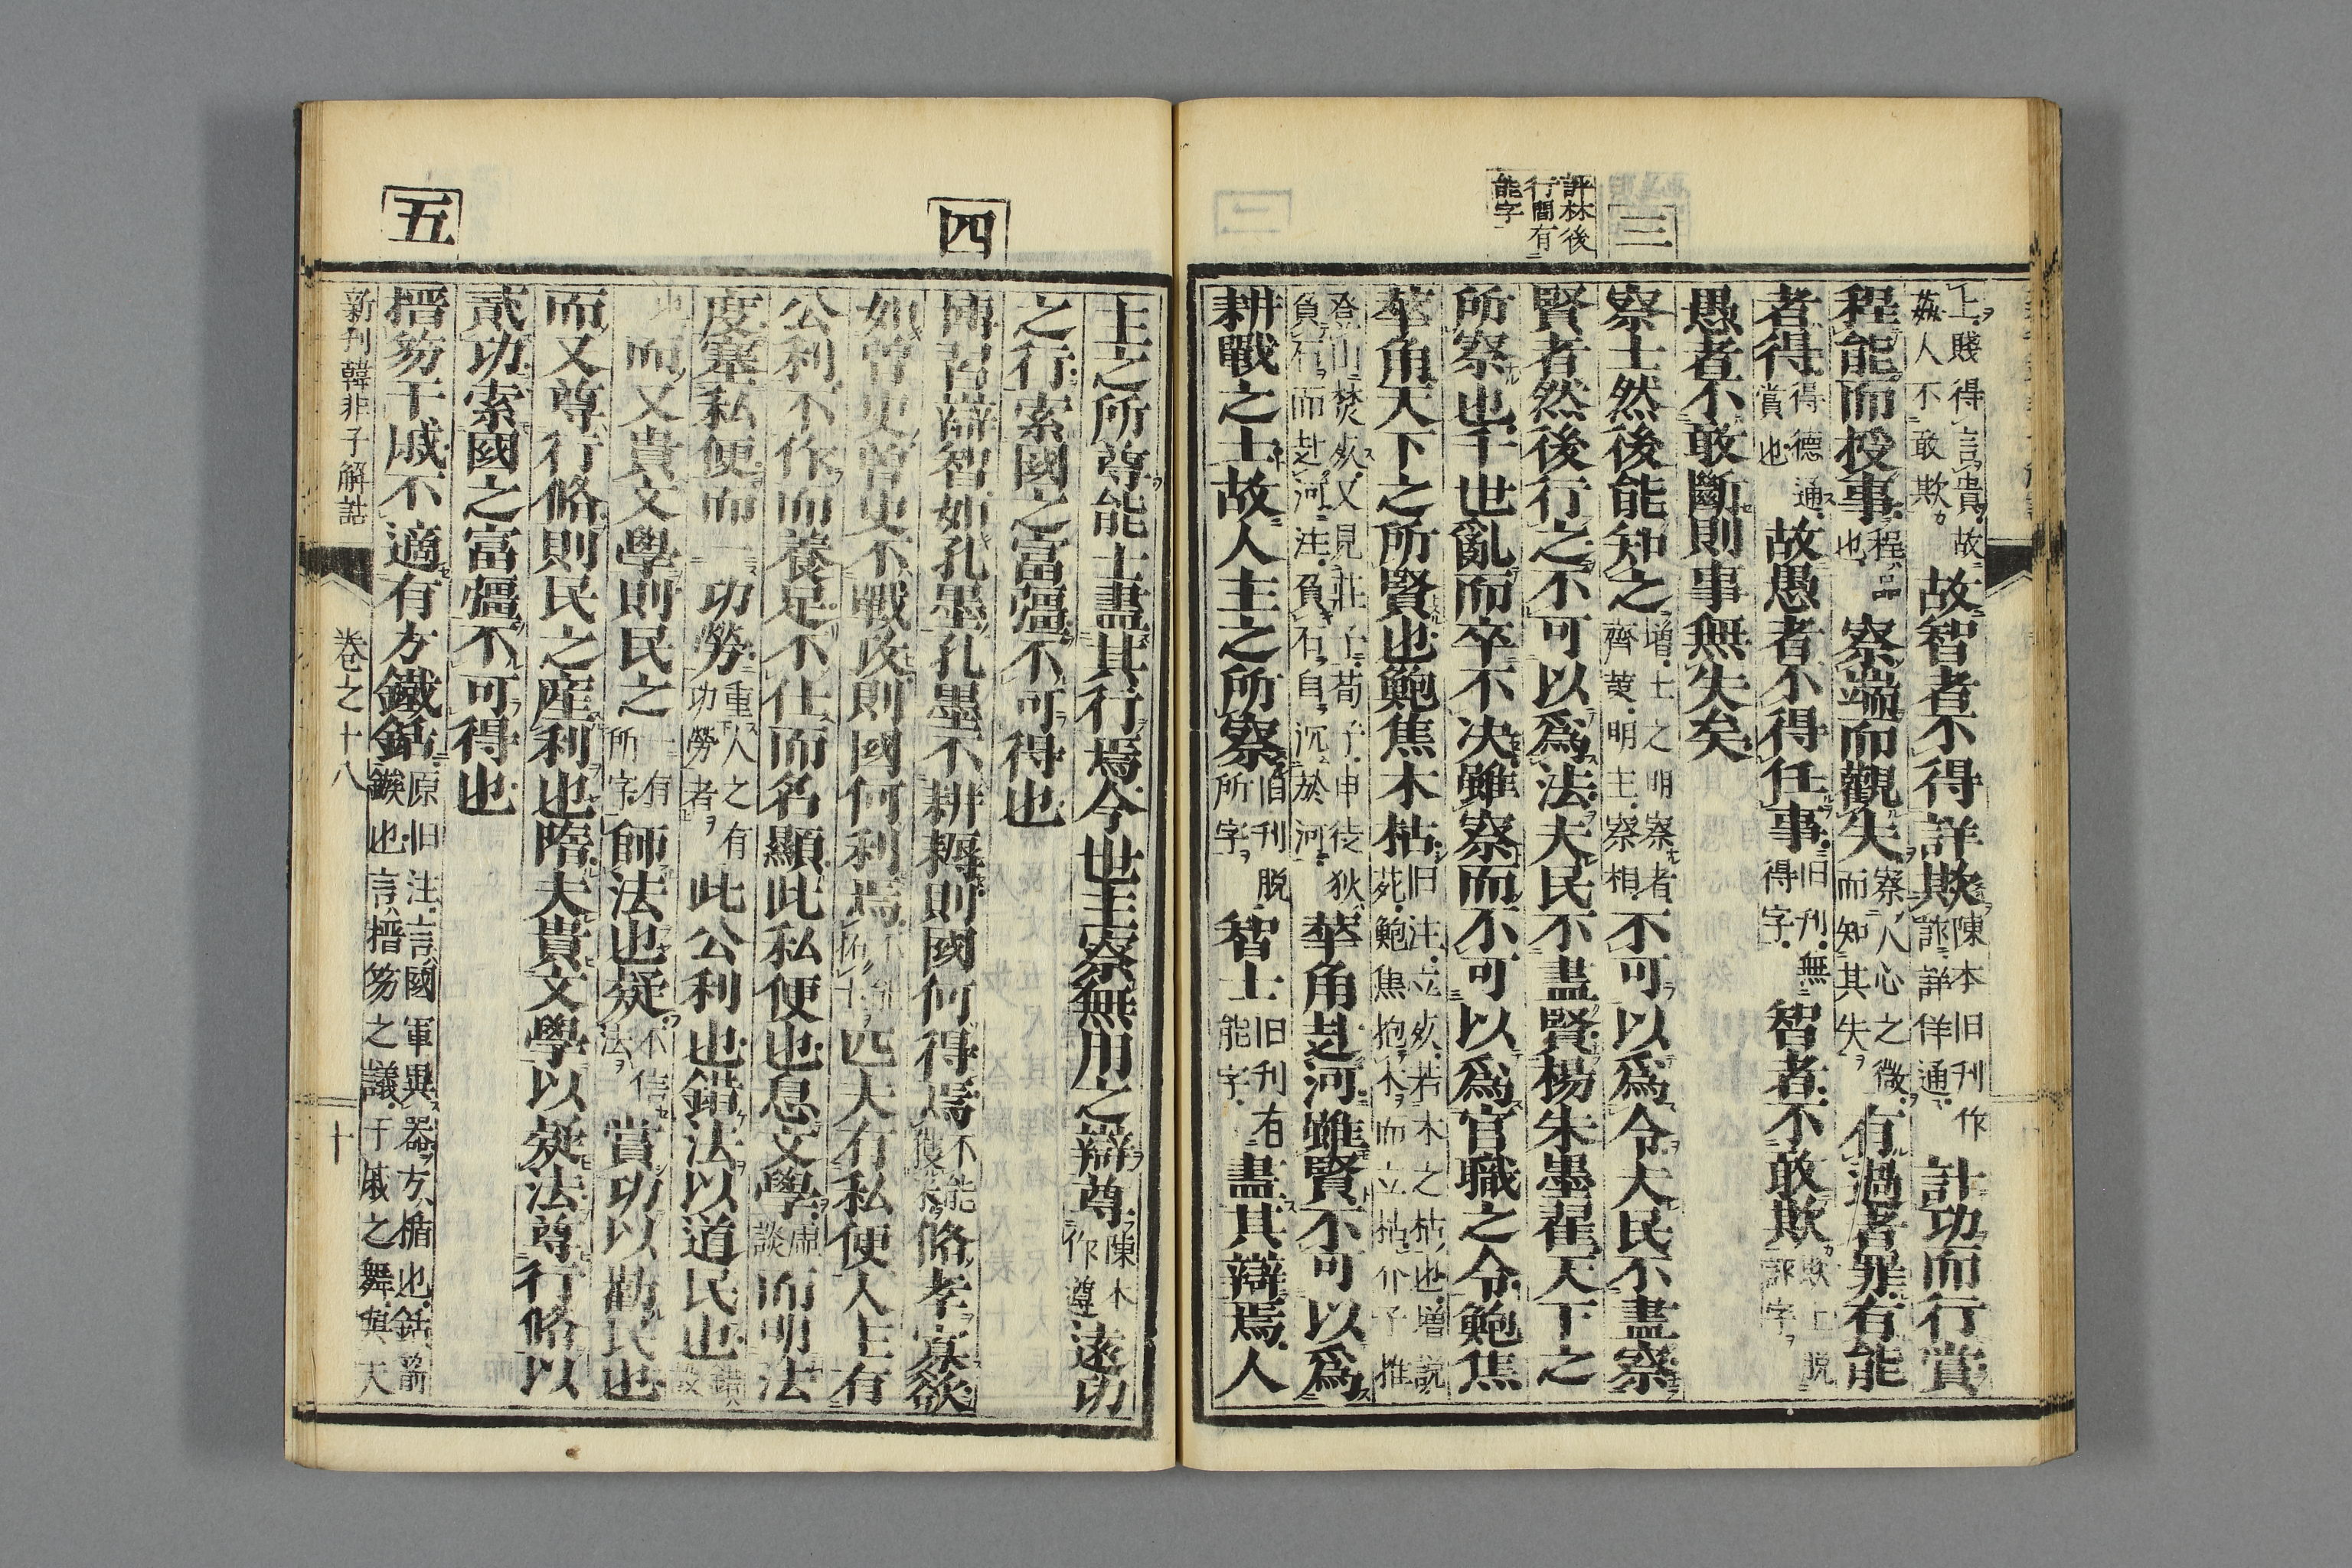 三
評林後
行間有
能字
上賤得言貴故
姦人不敢欺
故智者不得詐欺
陳本旧刊作
詐詳佯通
計功而行賞
程能而授事
程品
也
察端而觀失
察人心之微
而知其失
有過者罪有能
者得
得德通
賞也
故愚者不得任事
旧刊無
得字
智者不敢欺
欺上脱
評字
愚者不敢斷則事無失矣
察士然後能知之
増士之明察者
齊黄明主察相
不可以爲令夫民不盡察
賢者然後行之不可以爲法夫民不盡賢楊朱墨翟天下之
所察也干世亂而卒不決雖察而不可以爲官職之令鮑焦
華角天下之所賢也鮑焦木枯
旧注立於若木之枯也増說
死鮑焦抱木而立枯介子推
登山焚死又見莊子荀子申徒狄
負石而赴河注負石自沉於河
華角赴河雖賢不可以爲
耕戰之士故人主之所察
旧刊脱
所字
智士
旧刊有
能字
盡其辯焉人
四
五
主之所尊能士盡其行焉今世主察無用之辯尊
陳本
作遵
遠功
之行索國之富彊不可得也
博習辯智如孔墨孔墨不耕耨則國何得焉
不能
脩孝寡欲
如曾史曾史不戰攻則國何利焉
匹夫有私便人主有
公利不作而養足不仕而名顯此私便也息文學
而明法
度塞私便而一功勞
重人之有
功勞者
此公利也錯法以道民也
而又貴文學則民之
有
所字
師法也疑
不信
法
賞功以勸民也
而又尊行脩則民之産利也隋夫貴文學以疑法尊行脩以
貳功索國之富彊不可得也
搢笏干戚不適有方鐵銛
原旧注言國軍異器方楯也銛箭
鏃也言搢笏之議干戚之舞與夫
新刊韓非子解詁　卷之十八　十